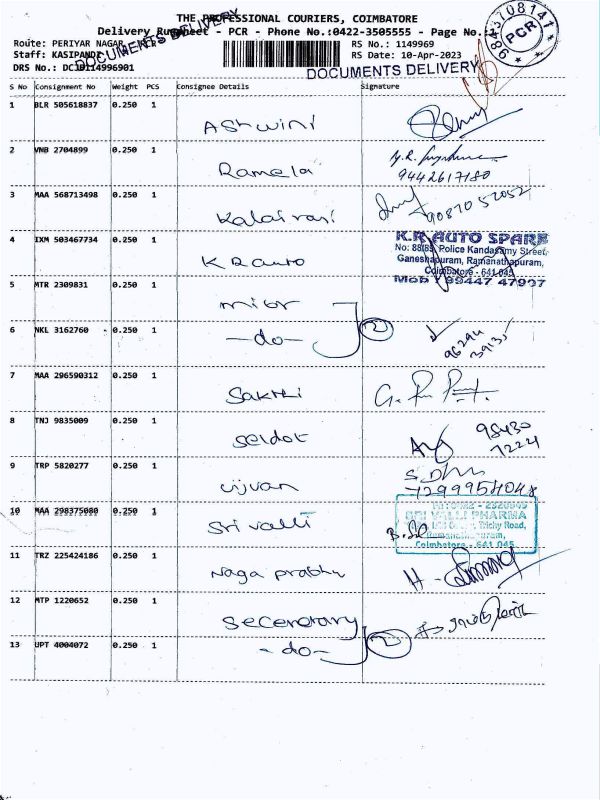 THE PROFESSIONAL COURIERS, COIMBATORE
Delivery Runsheet - PCR - Phone No.:0422-3505555 - Page No.:
Route: PERIYAR NAGAR
RS No.: 1149969
Staff: KASIPANDI
RS Date: 10-Apr-2023
DRS No.:
DOCUMENTS DELIVERY
DOCUMENTS DELIVERY
9843708141
PCR
S No Consignment No Weight PCS Consignee Details Signature
1 BLR 505618837 0.250 1 Ashwini
2 VNB 2704899 0.250 1 Ramela
9442617180
3 MAA 568713498 0.250 1 Kalairani
9087052052
4 IXM 503467734 0.250 1 KR auto
K.R AUTO SPARE
No: 88/89, Police Kandasamy Street,
Ganeshapuram, Ramanathapuram,
Coimbatore - 641 045
Mob : 99447 47907
5 MTR 2309831 0.250 1 mior
6 NKL 3162760 0.250 1 -do- 2
7 MAA 296590312 0.250 1 Sakthi
8 TNJ 9835009 0.250 1 seldot
98430
7224
9 TRP 5820277 0.250 1 vijuan
7299954048
10 MAA 298375080 0.250 1 Sri valli
SRI VALLI PHARMA
Trichy Road,
Ramanathapuram,
Coimbatore - 641 045
11 TRZ 225424186 0.250 1 Naga prabhu
12 MTP 1220652 0.250 1 Secerdrary
13 UPT 4004072 0.250 1 -do- 2